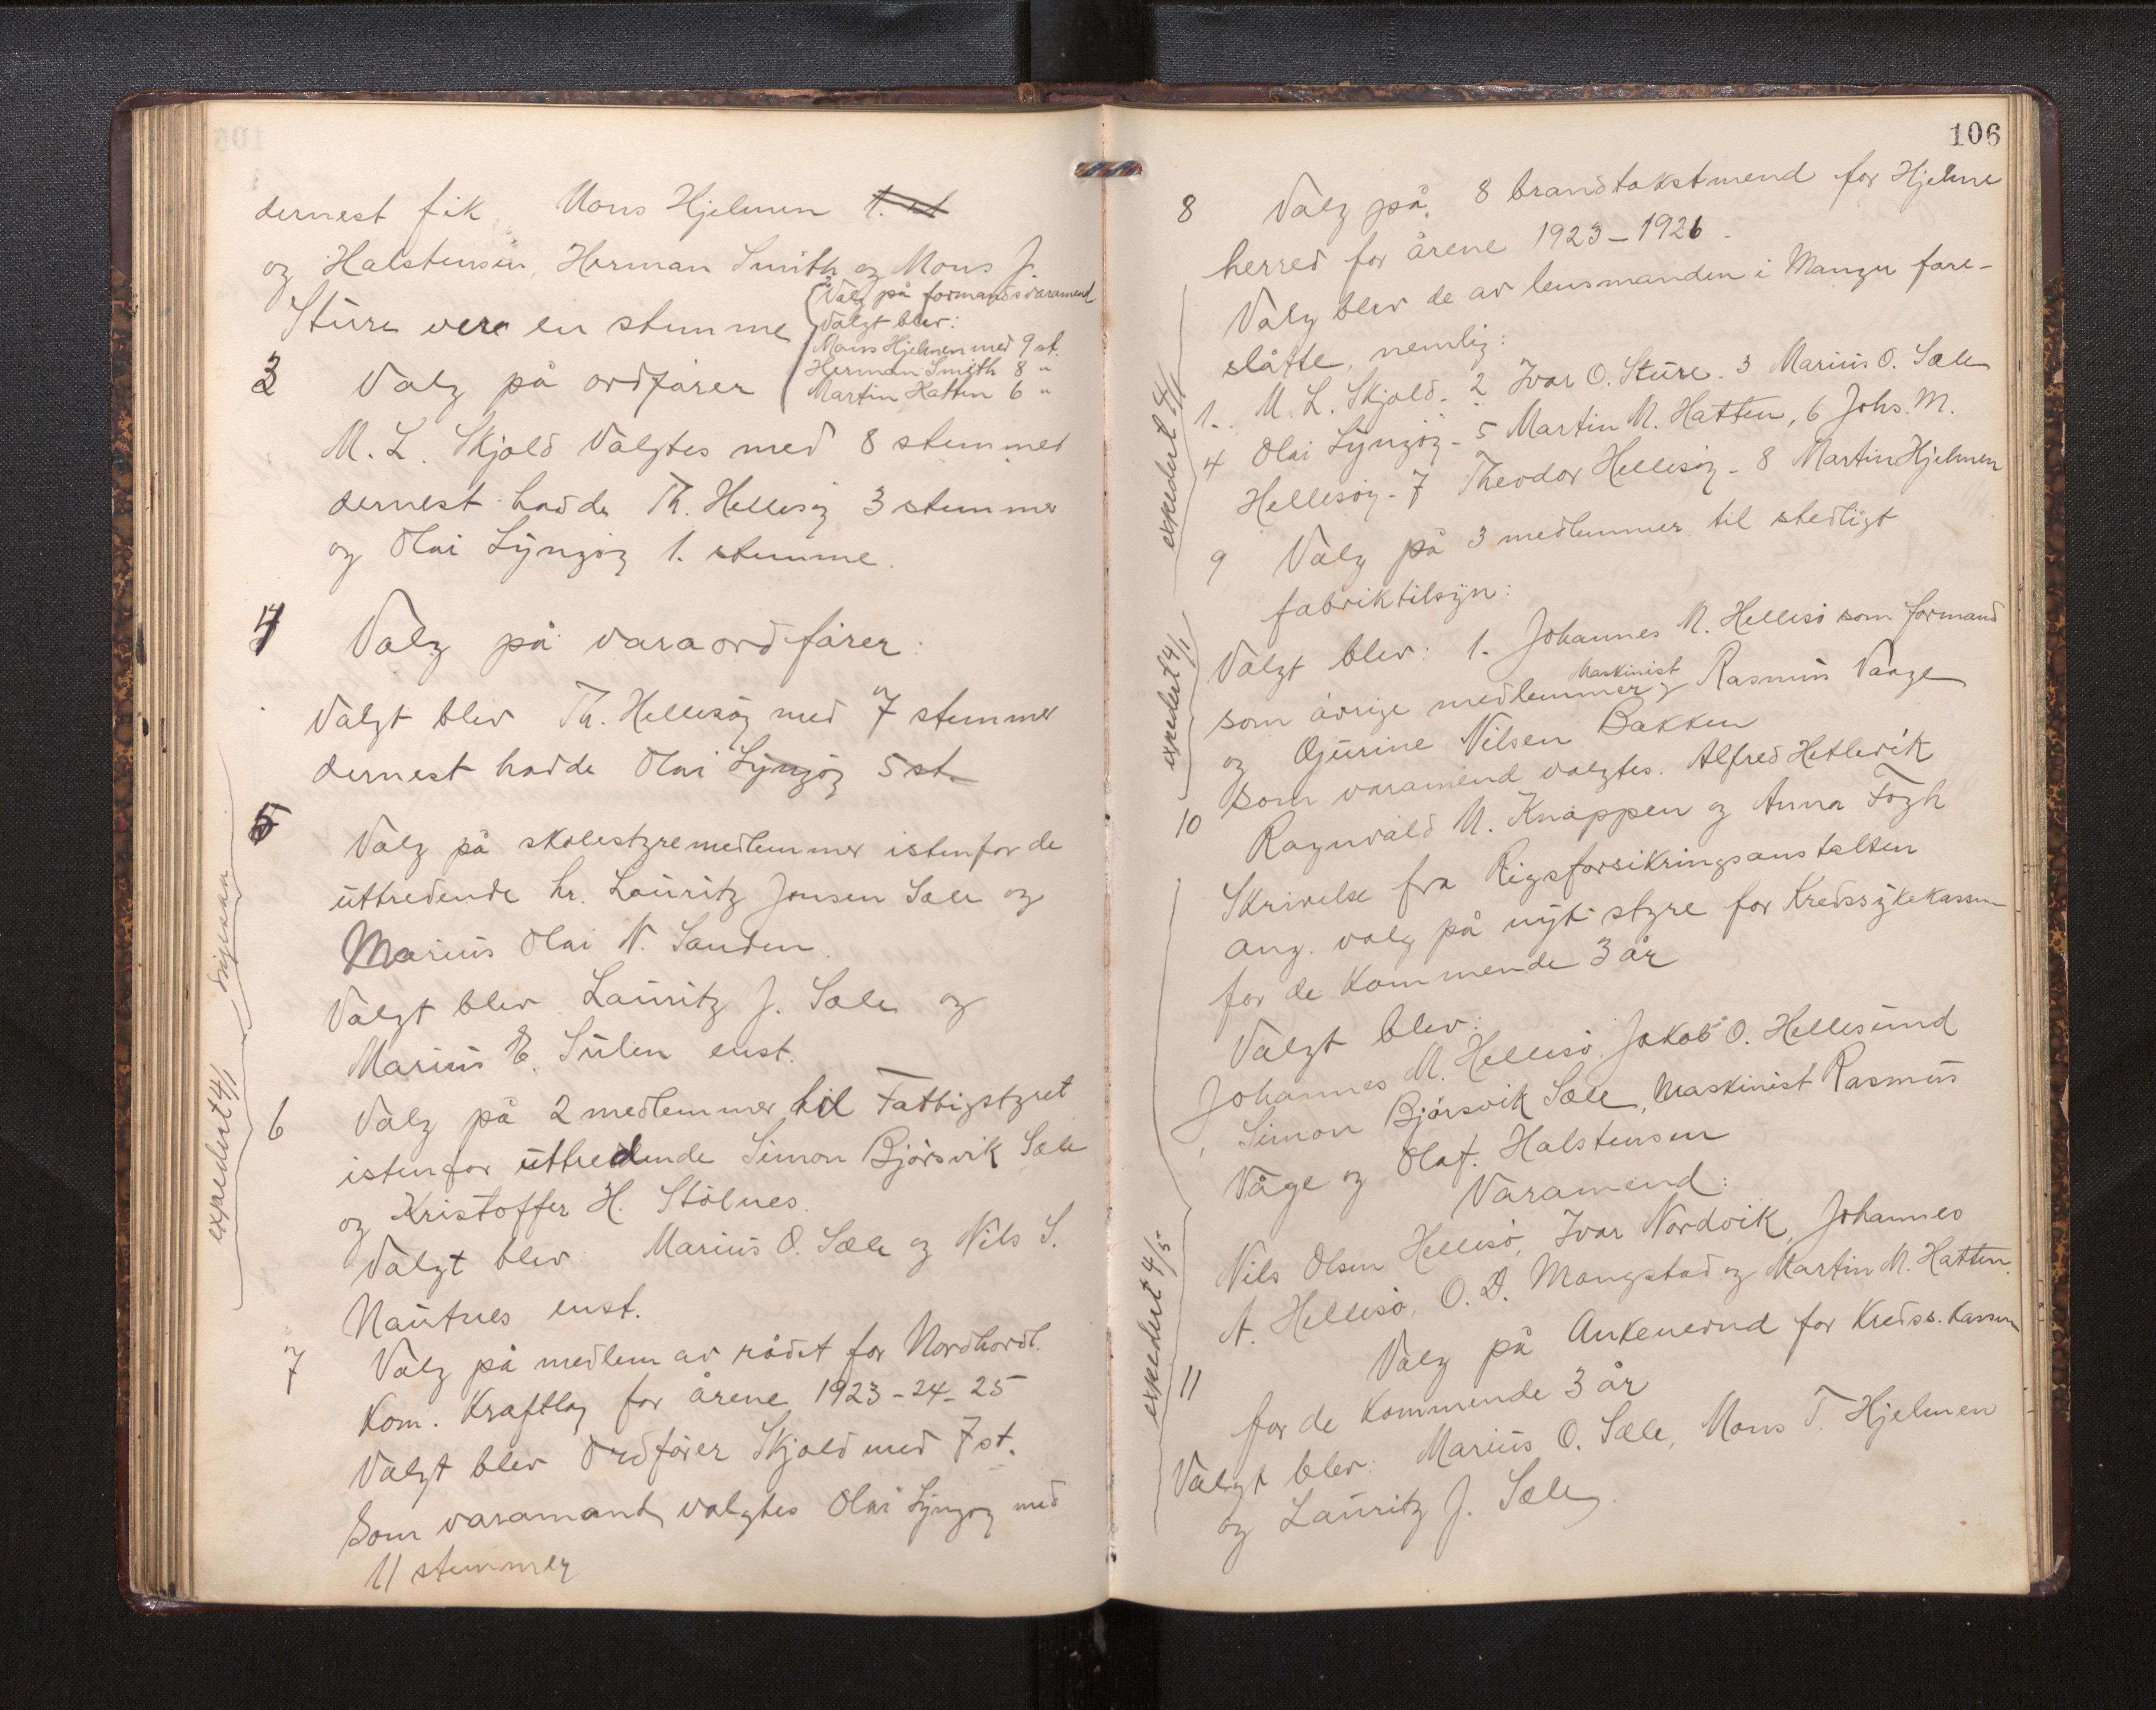 dernest fik Mons Hjelmen 1. st
og Halstensen, Herman Smith og Mons J.
Sture vere en stemme
Valg på formandsvaramend
Valgt blev:
Mons Hjelmen med 9 st.
Herman Smith 8 "
Martin Hatten 6 "
3 Valg på ordfører
M. L. Skjold valgtes med 8 stemmer
dernest hadde Th. Hellesøy 3 stemmer
og Olai Lyngøy 1. stemme.
4 Valg på varaordfører:
Valgt blev Th. Hellesøy med 7 stemmer
dernest hadde Olai Lyngøy 5 st.
5 Valg på skolestyremedlemmer istenfor de
uttredende hr. Lauritz Jonsen Sæle og
Marius Olai N. Sanden.
Valgt blev Lauritz J. Sæle og
Marius E. Sulen enst.
expedert 4/1
6 Valg på 2 medlemmer til Fattigstyret
istenfor uttredende Simon Bjørsvik Sæle
og Kristoffer H. Stølnes.
Valgt blev: Marius O. Sæle og Nils S.
Nautnes enst.
7 Valg på medlem av rådet for Nordhordl.
Kom. Kraftlag for årene 1923-24-25
Valgt blev Ordfører Skjold med 7 st.
Som varamand valgtes Olai Lyngøy med
11 stemmer
106
8 Valg på 8 brandtakstmend for Hjelme
herred for årene 1923-1926.
Valg blev de av lensmanden i Manger fore-
slåtte, nemlig:
1. M. L. Skjold. 2 Ivar O. Sture. 3 Marius O. Sæle
4 Olai Lyngøy - 5 Martin M. Hatten, 6 Johs. M.
Hellesøy - 7 Theodor Hellesøy - 8 Martin Hjelmen
expedert 4/1
9 Valg på 3 medlemmer til stedligt
fabriktilsyn:
Valgt blev: 1. Johannes M. Hellesø som formand
som øvrige medlemmer Maskinist Rasmus Vaage
og Gjurine Nilsen Bakken
som varamend valgtes. Alfred Hetlevik
Ragnvald M. Knappen og Anna Fogh
expedert 4/1
10 Skrivelse fra Rigsforsikringsanstalten
ang. valg på nyt styre for Kredssykekassen
for de kommende 3 år
Valgt blev:
Johannes M. Hellesø. Jakob O. Hellesund
Simon Bjørsvik Sæle, Maskinist Rasmus
Våge og Olaf. Halstensen
Varamend:
Nils Olsen Hellesø, Ivar Nordvik, Johannes
A. Hellesø, O. D. Mongstad og Martin M. Hatten.
11 Valg på Ankenevnd for Kredss. kassen
for de kommende 3 år
Valgt blev: Marius O. Sæle, Mons T. Hjelmen
og Lauritz J. Sæle.
expedert 4/5